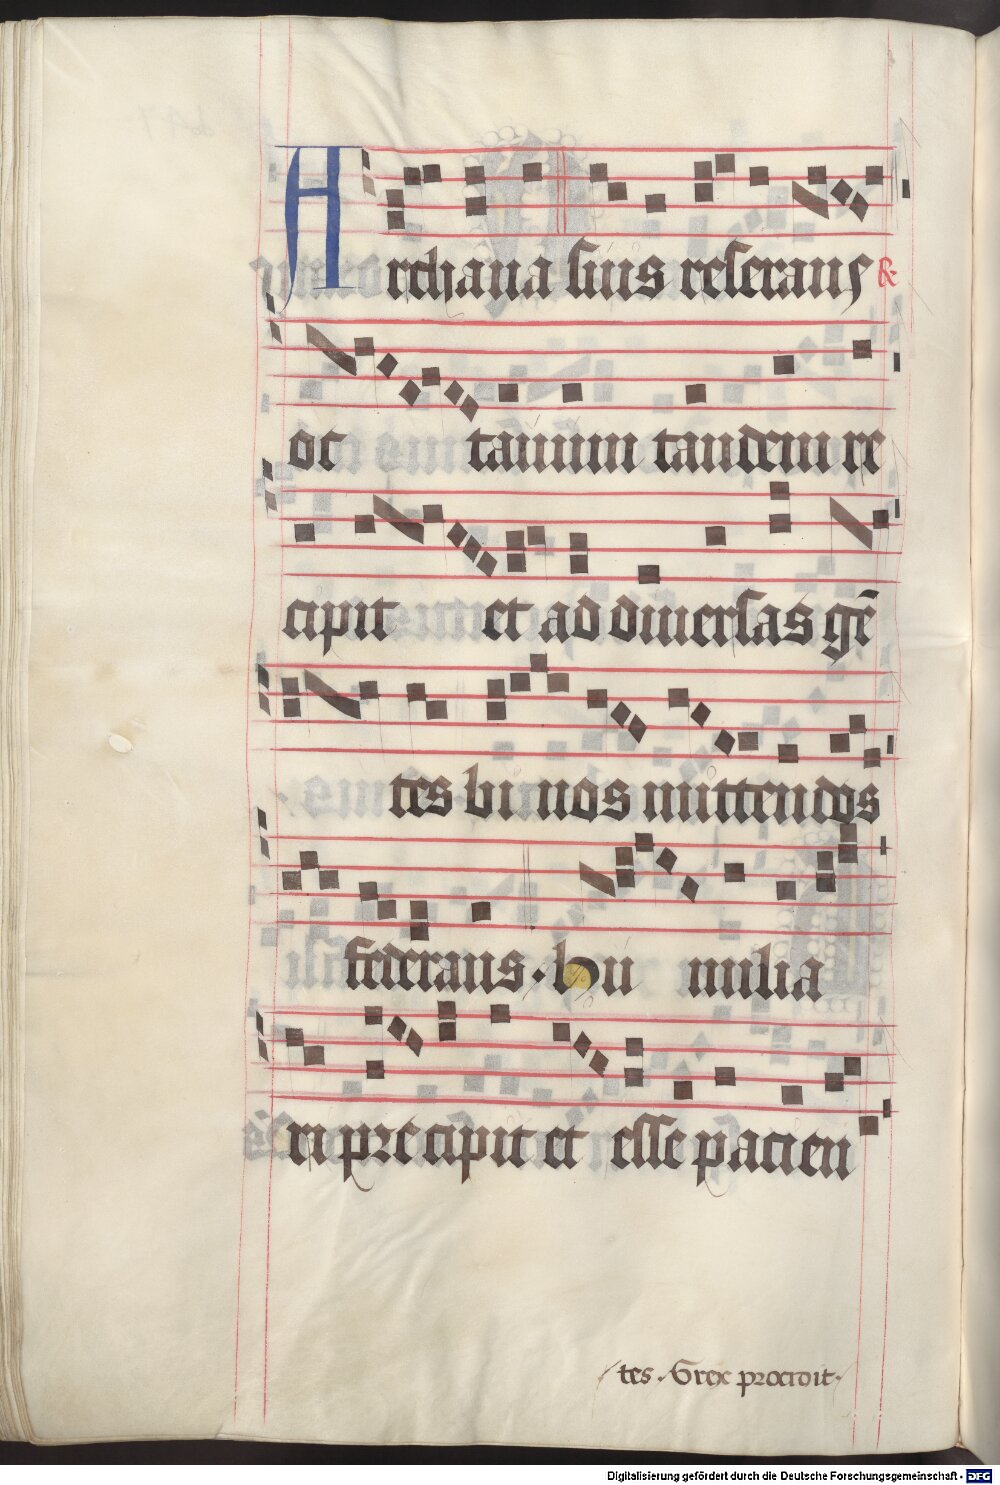 Archana suis reserans R
oc tauum tandem re
cipit et ad diuersas gē
tes bi nos mittendos
federans · hu milia
ri precipit et esse pacien
tes · Grex procedit ·
Digitalisierung gefördert durch die Deutsche Forschungsgemeinschaft - DFG